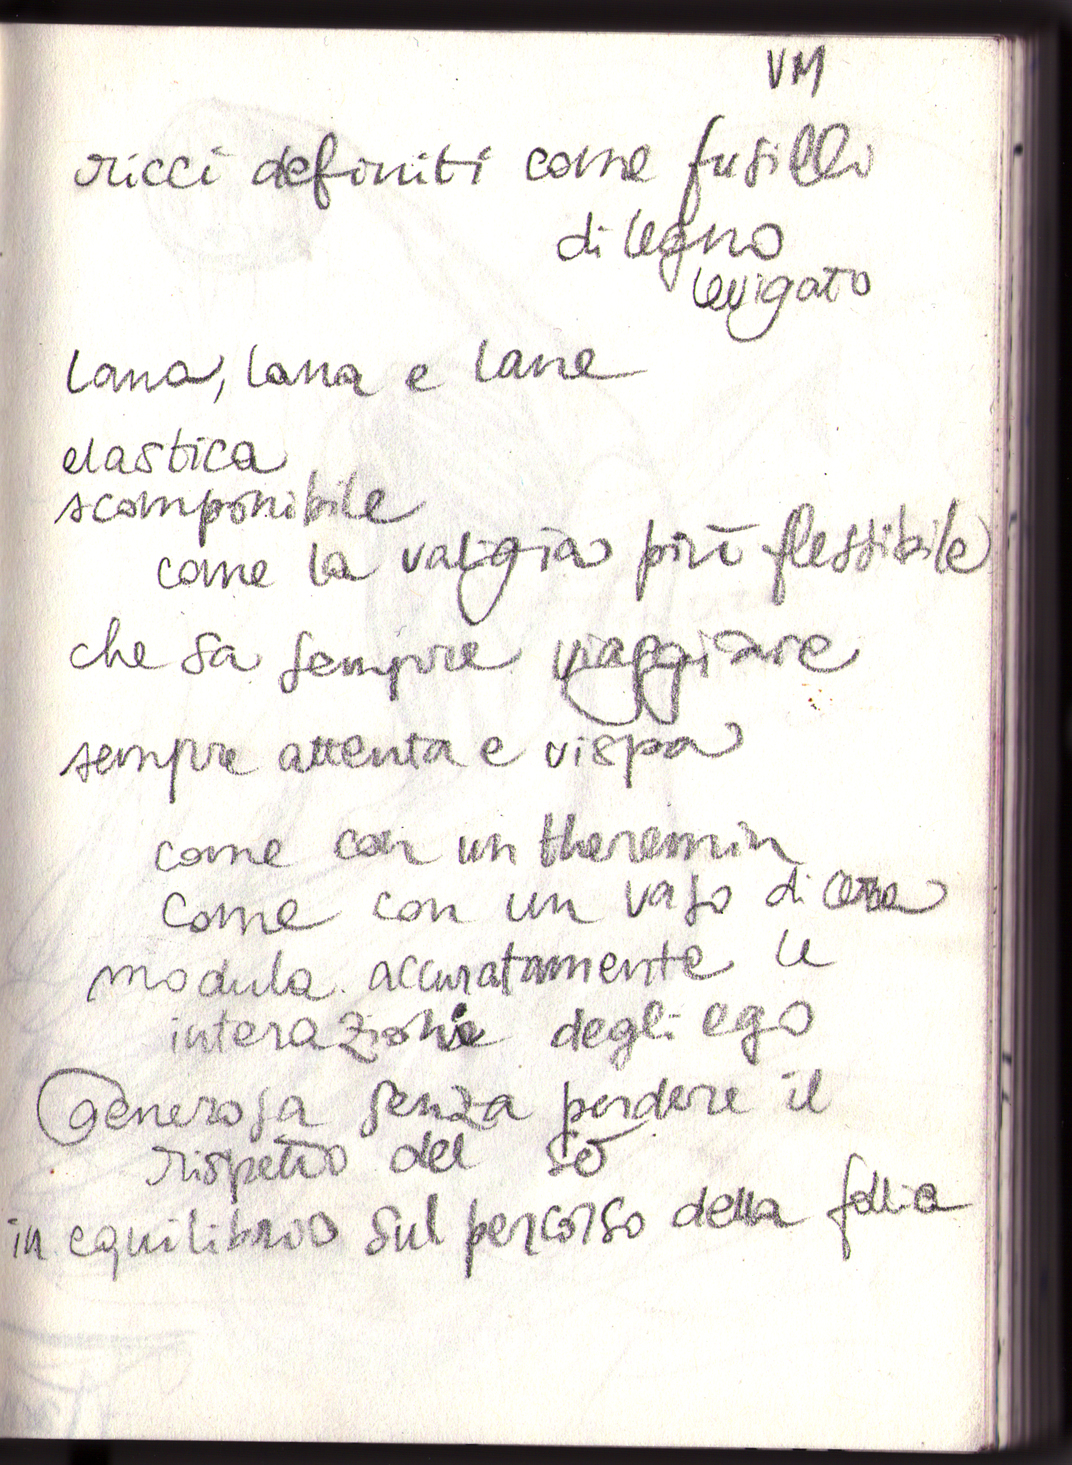 VM
ricci definiti come fusilli
di legno
levigato
lana, lana e lane
elastica
scomponibile
come la valigia più flessibile
che sa sempre viaggiare
sempre attenta e vispa
come con un theremin
come con un vaso di cera
modula accuratamente le
interazioni degli ego
generosa senza perdere il
rispetto del sé
in equilibrio sul percorso della follia